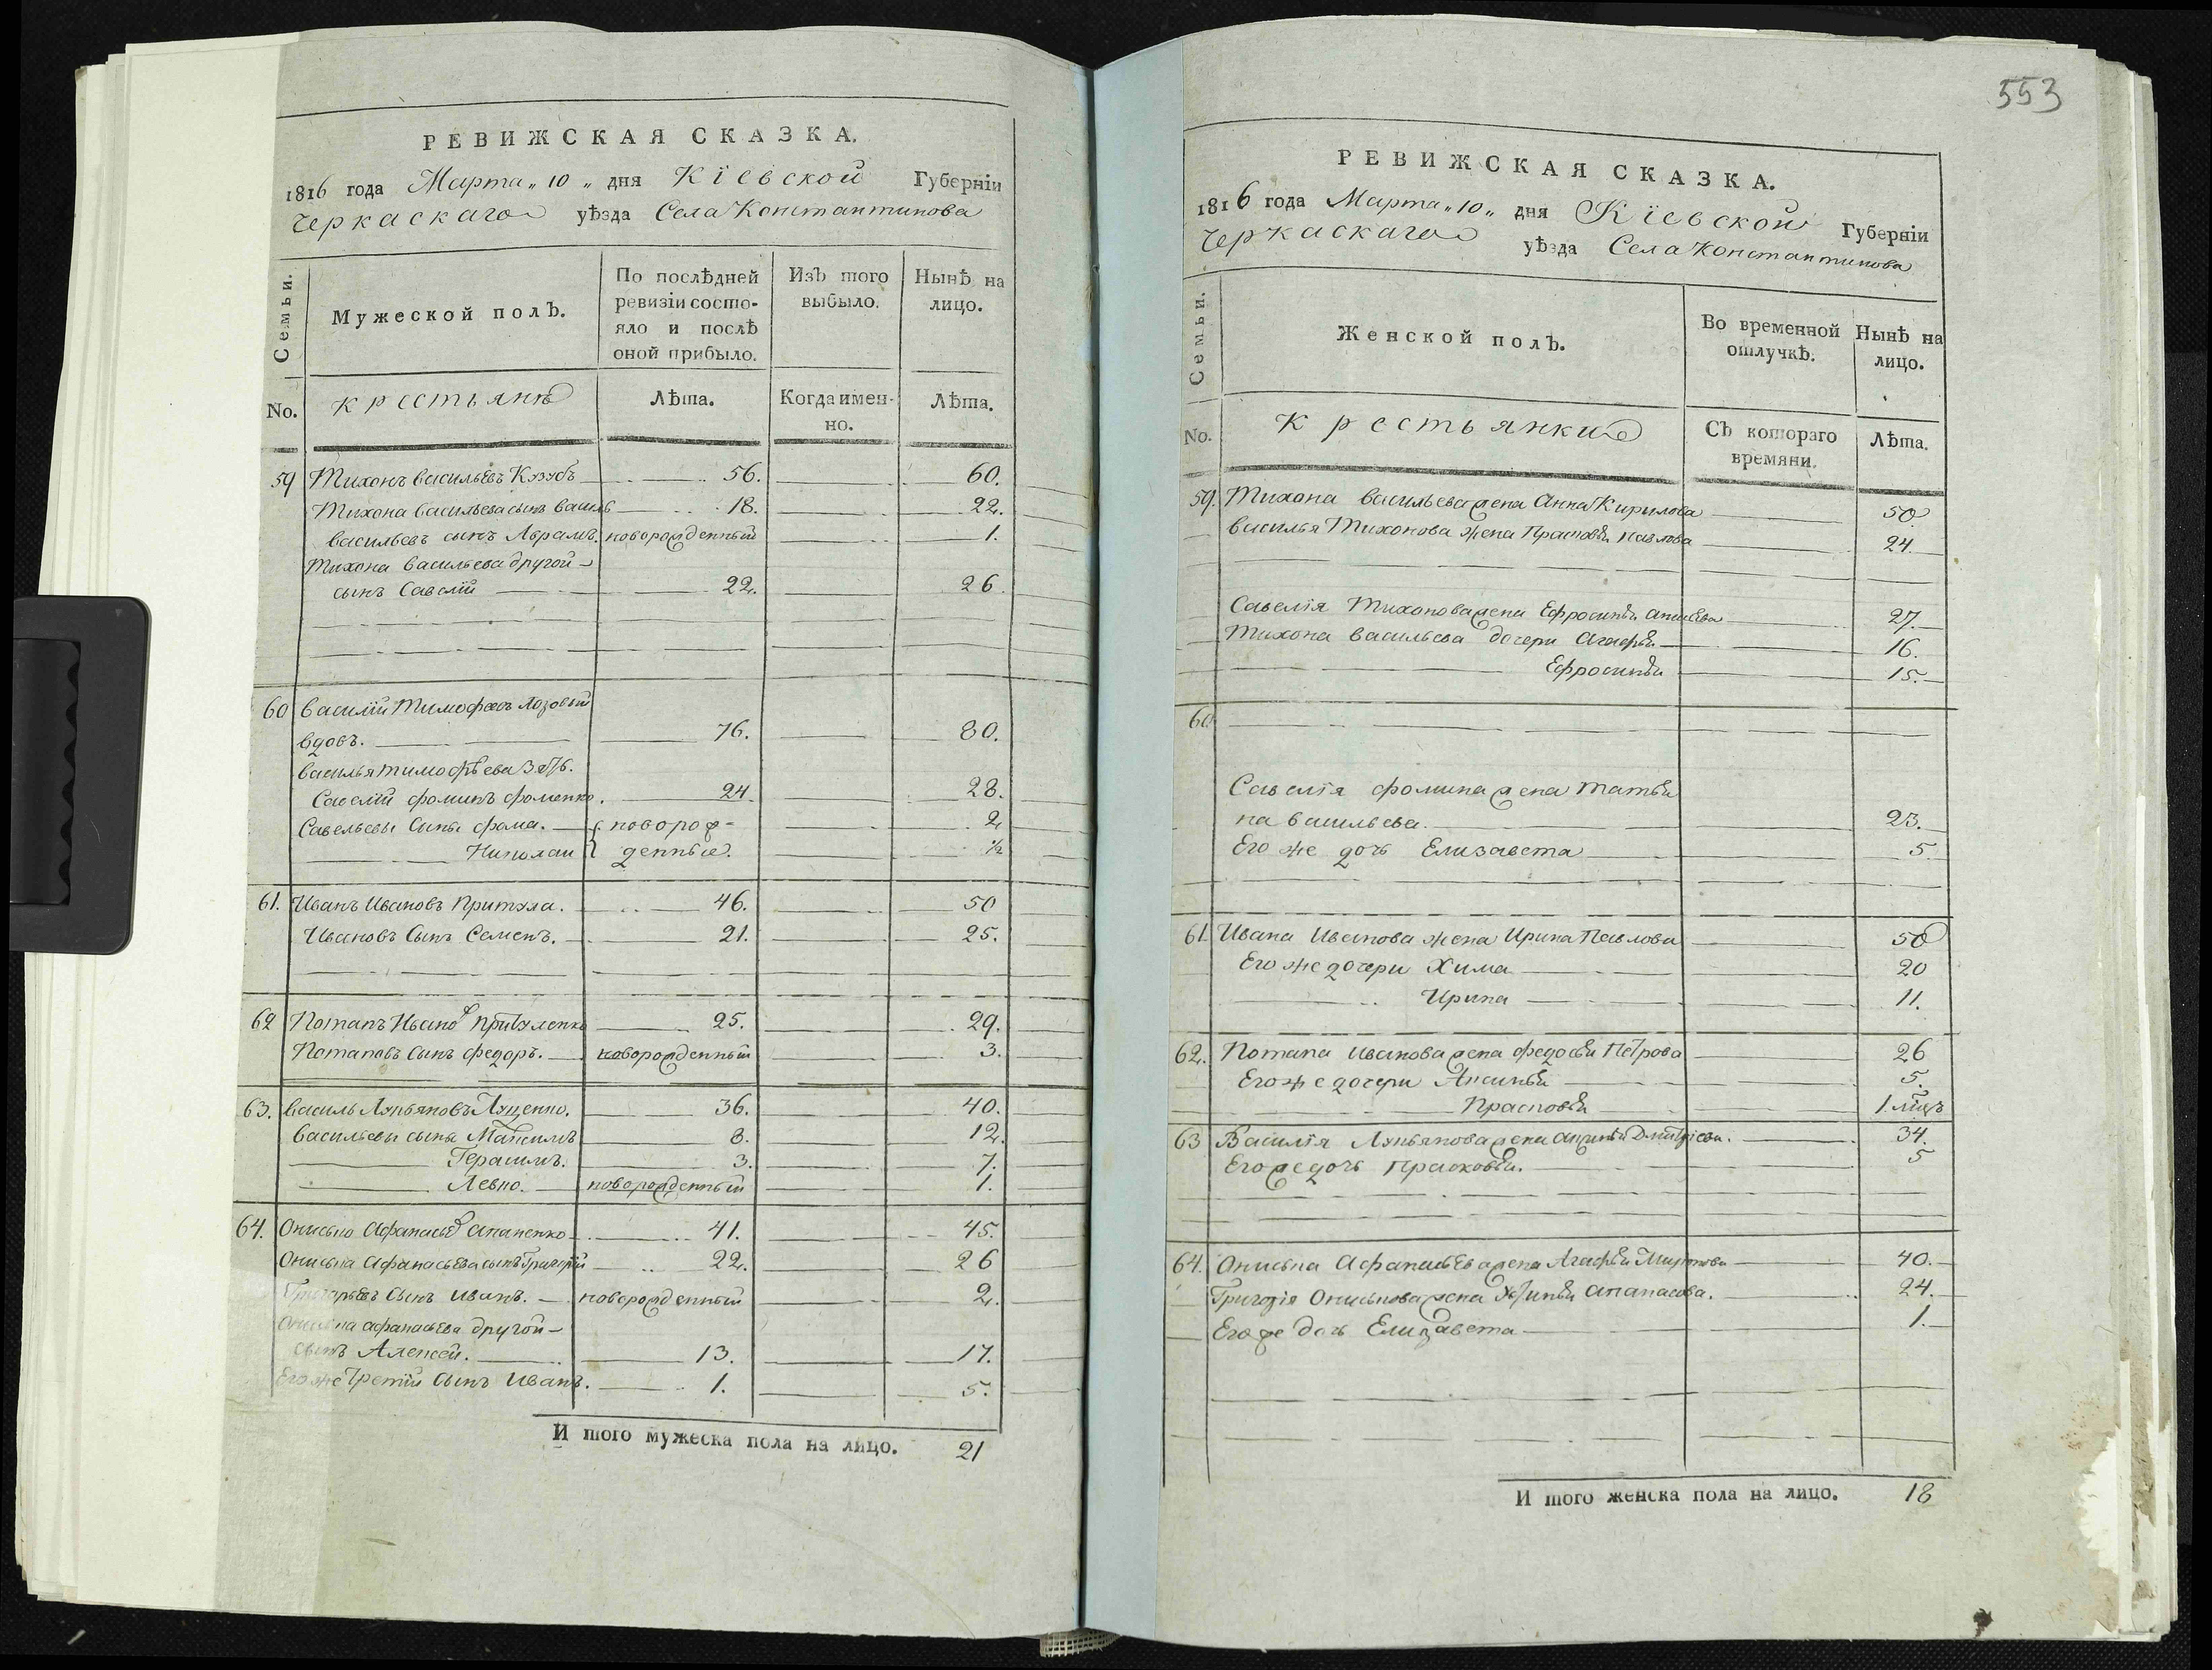 РЕВИЖСКАЯ СКАЗКА.
1816 года Марта „ 10 „ дня Кіевской Губерніи
Черкаскаго уѣзда Села Константинова
Семьи. Мужеской полъ. По послѣдней ревизіи состо- яло и послѣ оной прибыло. Изъ того выбыло. Нынѣ на лицо.
No. крестьянѣ Лѣта. Когда имен- но. Лѣта.
59 Тихонъ васильевъ Кузубъ 56. 60.
Тихона васильева сынъ василь 18. 22.
васильевъ сынъ Абрамъ. новорожденный 1.
Тихона васильева другой
сынъ Савелій 22. 26.
60 василій Тимофеевъ Лозовый
вдовъ. 76. 80.
василья тимофѣева зять.
Савелій фоминъ фоменко. 24. 28.
Савельевы Сыны фома. новорож- 2.
Николай денные. ½
61. Иванъ Ивановъ Притула. 46. 50
Ивановъ Сынъ Семенъ. 21. 25.
62 Потапъ Ивановъ Притуленко 25. 29.
Потаповъ Сынъ федоръ. новорожденный 3.
63. василь Лукьяновъ Луценко. 36. 40.
васильевы сыны Максимъ 8. 12.
Герасимъ. 3. 7.
Левко. новорожденный 1.
64. Онисько Афанасьевъ Апаненко 41. 45.
Ониська Афанасьева сынъ Григорій 22. 26
Григорьевъ Сынъ иванъ. новорожденный 2.
Ониська афанасьева другой
сынъ Алексей. 13. 17.
Егоже Третій Сынъ Иванъ. 1. 5.
И того мужеска пола на лицо. 21
553
РЕВИЖСКАЯ СКАЗКА.
1816 года Марта „ 10 „ дня Кіевской Губерніи
Черкаскаго уѣзда Села Константинова
Семьи. Женской полъ. Во временной отлучкѣ. Нынѣ на лицо.
No. Крестьянки Съ котораго времяни. Лѣта.
59. Тихона васильева жена Анна Кирилова 50
василья Тихонова жена Прасковья павлова 24.
Савелія Тихонова жена Ефросинья 27.
Тихона васильева дочери Агафья 16.
Ефросинья 15.
60.
Савелія фомина жена татья
на васильева. 23.
Его же дочь Елизавета 5.
61. Ивана Иванова жена Ирина Павлова 50
Его же дочери Хима 20
Ирина 11.
62. Потапа иванова жена федосья Петрова 26
Егоже дочери Аксинья 5.
Прасковья 1 мѣсъ
63 Василія Лукьянова жена Дмитріева. 34.
Егоже дочь прасковья. 5
64. Ониська Афанасьева жена Агафья 40.
Григорія Ониськова жена апанасова. 24.
Егоже дочь Елизавета 1.
И того женска пола на лицо. 18